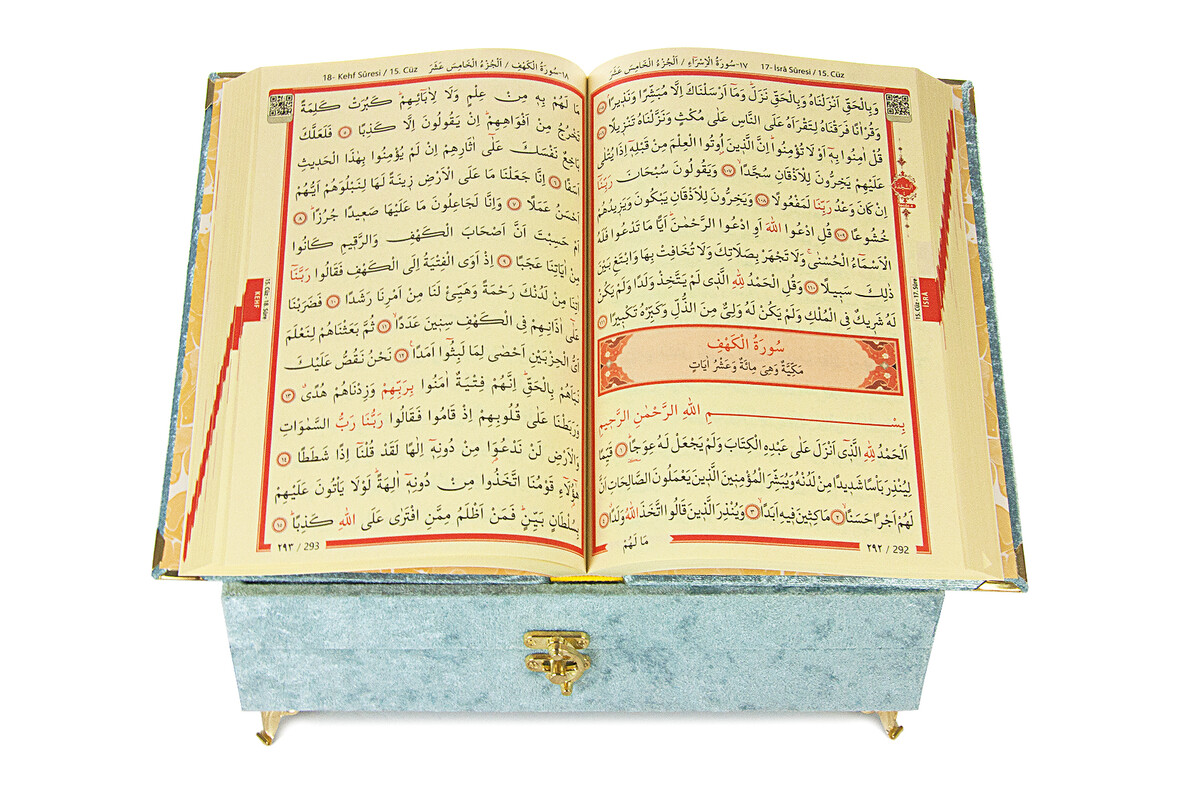 17- İsrâ Sûresi / 15. Cüz ١٧-سُورَةُ الْاِسْرَاءِ / اَلْجُزْءُ الْخَامِسَ عَشَرَ
وَبِالْحَقِّ اَنْزَلْنَاهُ وَبِالْحَقِّ نَزَلَۜ وَمَٓا اَرْسَلْنَاكَ اِلَّا مُبَشِّرًا وَنَذ۪يرًاۢ ﴿١٠٥﴾
وَقُرْاٰنًا فَرَقْنَاهُ لِتَقْرَاَهُ عَلَى النَّاسِ عَلٰى مُكْثٍ وَنَزَّلْنَاهُ تَنْز۪يلًا ﴿١٠٦﴾
قُلْ اٰمِنُوا بِه۪ٓ اَوْ لَا تُؤْمِنُواۜ اِنَّ الَّذ۪ينَ اُو۫تُوا الْعِلْمَ مِنْ قَبْلِه۪ٓ اِذَا يُتْلٰى
عَلَيْهِمْ يَخِرُّونَ لِلْاَذْقَانِ سُجَّدًاۙ ﴿١٠٧﴾ وَيَقُولُونَ سُبْحَانَ رَبِّنَٓا
اِنْ كَانَ وَعْدُ رَبِّنَا لَمَفْعُولًا ﴿١٠٨﴾ وَيَخِرُّونَ لِلْاَذْقَانِ يَبْكُونَ وَيَز۪يدُهُمْ
خُشُوعًا ﴿١٠٩﴾ قُلِ ادْعُوا اللّٰهَ اَوِ ادْعُوا الرَّحْمٰنَۜ اَيًّا مَا تَدْعُوا فَلَهُ
الْاَسْمَٓاءُ الْحُسْنٰىۚ وَلَا تَجْهَرْ بِصَلَاتِكَ وَلَا تُخَافِتْ بِهَا وَابْتَغِ بَيْنَ
ذٰلِكَ سَب۪يلًا ﴿١١٠﴾ وَقُلِ الْحَمْدُ لِلّٰهِ الَّذ۪ي لَمْ يَتَّخِذْ وَلَدًا وَلَمْ يَكُنْ
لَهُ شَر۪يكٌ فِي الْمُلْكِ وَلَمْ يَكُنْ لَهُ وَلِيٌّ مِنَ الذُّلِّ وَكَبِّرْهُ تَكْب۪يرًا ﴿١١١﴾
سُورَةُ الْكَهْفِ
مَكِّيَّةٌ وَهِيَ مِائَةٌ وَعَشْرُ اٰيَاتٍ
بِسْمِ اللّٰهِ الرَّحْمٰنِ الرَّح۪يمِ
اَلْحَمْدُ لِلّٰهِ الَّذ۪ٓي اَنْزَلَ عَلٰى عَبْدِهِ الْكِتَابَ وَلَمْ يَجْعَلْ لَهُ عِوَجًاۜ ﴿١﴾ قَيِّمًا
لِيُنْذِرَ بَأْسًا شَد۪يدًا مِنْ لَدُنْهُ وَيُبَشِّرَ الْمُؤْمِن۪ينَ الَّذ۪ينَ يَعْمَلُونَ الصَّالِحَاتِ اَنَّ
لَهُمْ اَجْرًا حَسَنًاۙ ﴿٢﴾ مَاكِث۪ينَ ف۪يهِ اَبَدًاۙ ﴿٣﴾ وَيُنْذِرَ الَّذ۪ينَ قَالُوا اتَّخَذَ اللّٰهُ وَلَدًاۗ ﴿٤﴾
مَا لَهُمْ
٢٩٢ / 292
İSRÂ
15. Cüz - 17. Sûre
18- Kehf Sûresi / 15. Cüz ١٨-سُورَةُ الْكَهْفِ / اَلْجُزْءُ الْخَامِسَ عَشَرَ
مَا لَهُمْ بِه۪ مِنْ عِلْمٍ وَلَا لِاٰبَٓائِهِمْۜ كَبُرَتْ كَلِمَةً
تَخْرُجُ مِنْ اَفْوَاهِهِمْۜ اِنْ يَقُولُونَ اِلَّا كَذِبًا ﴿٥﴾ فَلَعَلَّكَ
بَاخِعٌ نَفْسَكَ عَلٰٓى اٰثَارِهِمْ اِنْ لَمْ يُؤْمِنُوا بِهٰذَا الْحَد۪يثِ
اَسَفًا ﴿٦﴾ اِنَّا جَعَلْنَا مَا عَلَى الْاَرْضِ ز۪ينَةً لَهَا لِنَبْلُوَهُمْ اَيُّهُمْ
اَحْسَنُ عَمَلًا ﴿٧﴾ وَاِنَّا لَجَاعِلُونَ مَا عَلَيْهَا صَع۪يدًا جُرُزًاۜ ﴿٨﴾
اَمْ حَسِبْتَ اَنَّ اَصْحَابَ الْكَهْفِ وَالرَّق۪يمِ كَانُوا
مِنْ اٰيَاتِنَا عَجَبًا ﴿٩﴾ اِذْ اَوَى الْفِتْيَةُ اِلَى الْكَهْفِ فَقَالُوا رَبَّنَٓا
اٰتِنَا مِنْ لَدُنْكَ رَحْمَةً وَهَيِّئْ لَنَا مِنْ اَمْرِنَا رَشَدًا ﴿١٠﴾ فَضَرَبْنَا
عَلٰٓى اٰذَانِهِمْ فِي الْكَهْفِ سِن۪ينَ عَدَدًاۙ ﴿١١﴾ ثُمَّ بَعَثْنَاهُمْ لِنَعْلَمَ
اَيُّ الْحِزْبَيْنِ اَحْصٰى لِمَا لَبِثُٓوا اَمَدًا۟ ﴿١٢﴾ نَحْنُ نَقُصُّ عَلَيْكَ
نَبَاَهُمْ بِالْحَقِّۜ اِنَّهُمْ فِتْيَةٌ اٰمَنُوا بِرَبِّهِمْ وَزِدْنَاهُمْ هُدًىۗ ﴿١٣﴾
وَرَبَطْنَا عَلٰى قُلُوبِهِمْ اِذْ قَامُوا فَقَالُوا رَبُّنَا رَبُّ السَّمٰوَاتِ
وَالْاَرْضِ لَنْ نَدْعُوَ۬ا مِنْ دُونِه۪ٓ اِلٰهًا لَقَدْ قُلْنَٓا اِذًا شَطَطًا ﴿١٤﴾
هٰٓؤُ۬لَٓاءِ قَوْمُنَا اتَّخَذُوا مِنْ دُونِه۪ٓ اٰلِهَةًۜ لَوْلَا يَأْتُونَ عَلَيْهِمْ
بِسُلْطَانٍ بَيِّنٍۜ فَمَنْ اَظْلَمُ مِمَّنِ افْتَرٰى عَلَى اللّٰهِ كَذِبًاۜ ﴿١٥﴾
٢٩٣ / 293
KEHF
15. Cüz - 18. Sûre